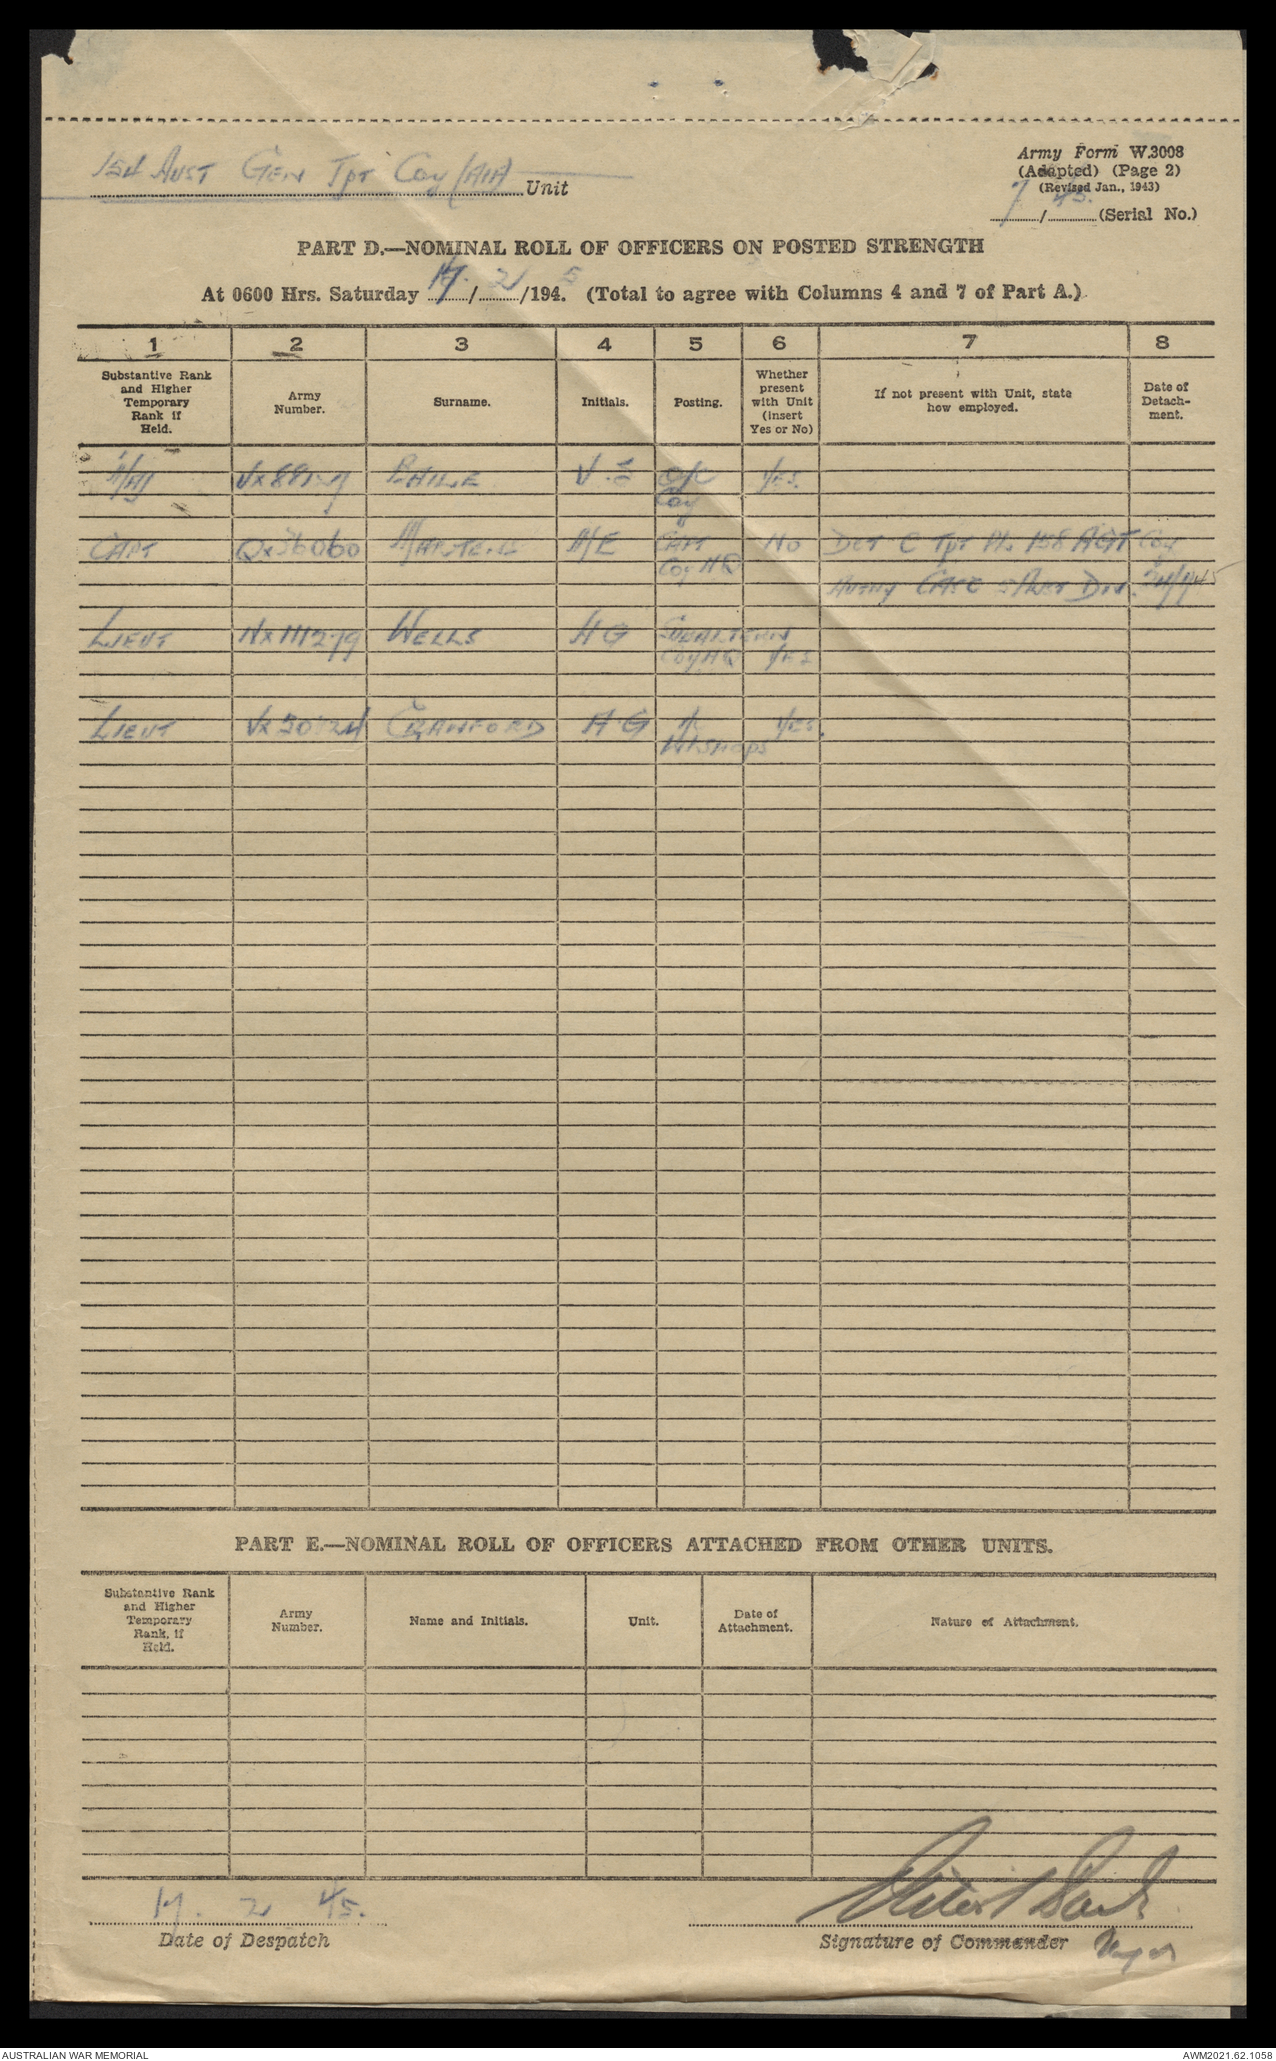 154 Aust Gen Tpt Coy (AIF) Unit
Army Form W.3008
(Adapted) (Page 2)
(Revised Jan., 1943)
7 / 45. (Serial No.)
PART D.—NOMINAL ROLL OF OFFICERS ON POSTED STRENGTH
At 0600 Hrs. Saturday 17 / 2 /1945. (Total to agree with Columns 4 and 7 of Part A.)
1 2 3 4 5 6 7 8
Substantive Rank and Higher Temporary Rank if Held.
Army Number.
Surname.
Initials.
Posting.
Whether present with Unit (insert Yes or No)
If not present with Unit, state how employed.
Date of Detach-ment.
Maj V.S O/C Yes.
Coy
Capt Qx36060 Martens A/E Capt No Det C Tpt Pl. 158 AGT Coy
Coy HQ
Authy CASC 5 Aust Div. 24/1/45
Lieut Nx111279 Wells H G Subaltern
Coy HQ Yes
Lieut Crawford A G Yes.
Wkshops
PART E.—NOMINAL ROLL OF OFFICERS ATTACHED FROM OTHER UNITS.
Substantive Rank and Higher Temporary Rank, if Held.
Army Number.
Name and Initials.
Unit.
Date of Attachment.
Nature of Attachment.
17. 2 45.
Date of Despatch
Signature of Commander Major
AUSTRALIAN WAR MEMORIAL
AWM2021.62.1058